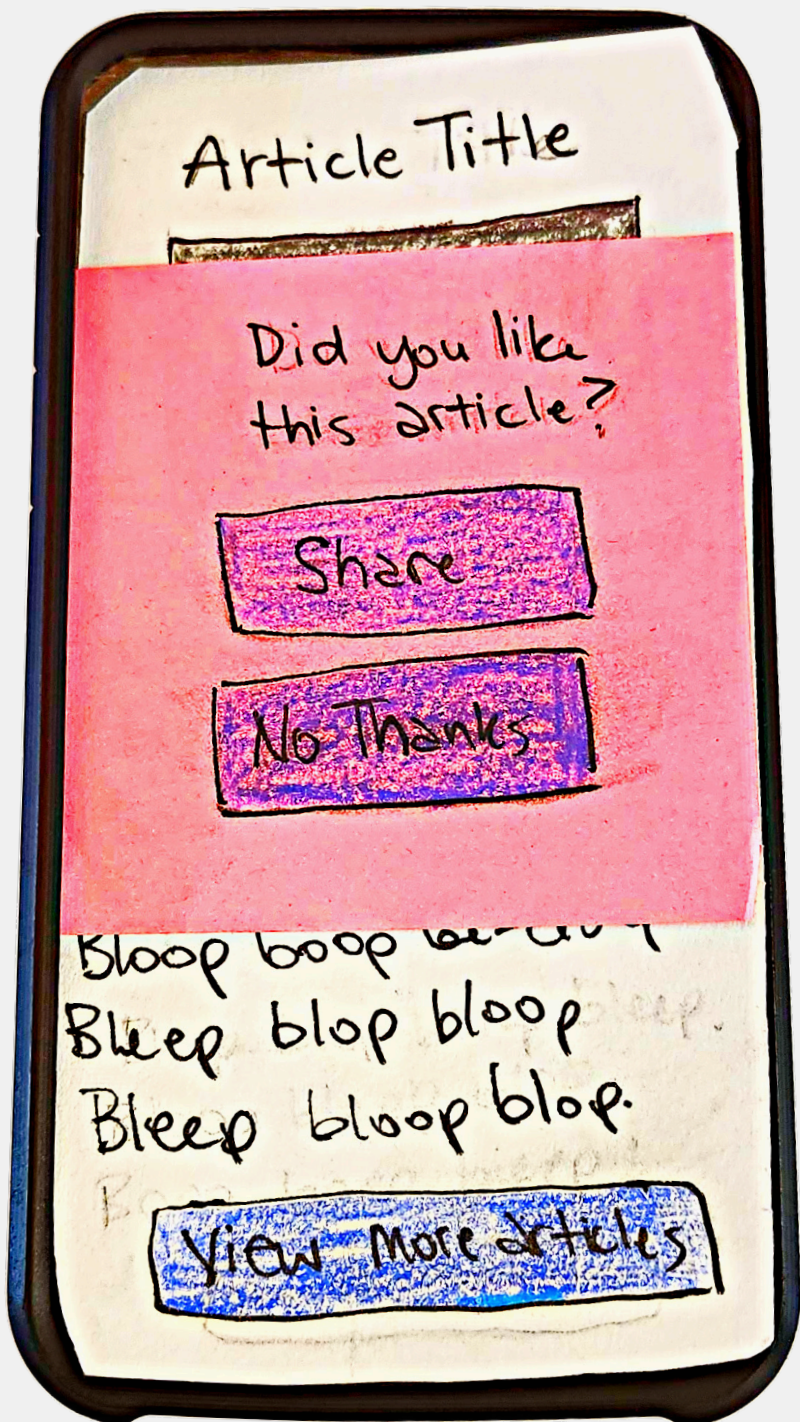 Article Title
Did you like
this article?
Share
No Thanks
Bloop boop
Bleep blop bloop
Bleep bloop blop.
View More articles